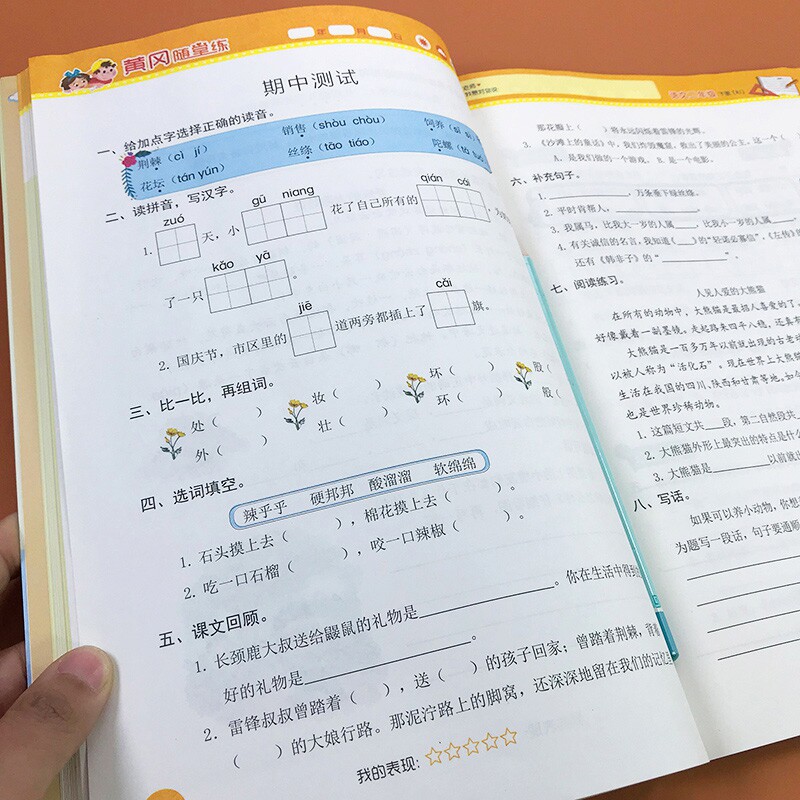 黄冈随堂练
年 月 日
期中测试
一、给加点字选择正确的读音。
荆棘(cì jí) 销售(shòu chòu) 饲养(sì
花坛(tán yún) 丝绦(tāo tiáo) 陀螺(tó
二、读拼音，写汉字。
zuó gū niang qián cái
1. 天，小 花了自己所有的 ，
kǎo yā
了一只 。
jiē cǎi
2. 国庆节，市区里的 道两旁都插上了 旗。
三、比一比，再组词。
处( ) 妆( ) 坏( ) 股(
外( ) 壮( ) 环( ) 般(
四、选词填空。
辣乎乎 硬邦邦 酸溜溜 软绵绵
1. 石头摸上去( )，棉花摸上去( )。
2. 吃一口石榴( )，咬一口辣椒( )。
五、课文回顾。
1. 长颈鹿大叔送给鼹鼠的礼物是 。你在生活中得到
好的礼物是 。
2. 雷锋叔叔曾踏着( )，送( )的孩子回家；曾踏着荆棘，背
( )的大娘行路。那泥泞路上的脚窝，还深深地留在我们的记忆
我的表现：
语文二年级 下册
那花瓣上( )将永远闪烁着雷锋的光辉。
3.《沙滩上的童话》中，我们炸毁魔窟，救出了美丽的公主。这一个(
A. 是我们做的一个游戏。 B. 是一个电影。
六、补充句子。
1. ，万条垂下绿丝绦。
2. 平时肯帮人， 。
3. 我属马，比我大一岁的人属 ，比我小一岁的人属
4. 有关诚信的名言，我知道( )的“轻诺必寡信”，《左传》的
还有《韩非子》的“
七、阅读练习。
人见人爱的大熊猫
在所有的动物中，大熊猫是最招人喜爱的了
好像戴着一副墨镜。走起路来四个八稳，还真有
大熊猫是一百多万年以前就出现的古老动
以被人称为“活化石”。现在世界上大熊猫
生活在我国的四川、陕西和甘肃等地。如今
也是世界珍稀动物。
1. 这篇短文共 段，第二自然段共
2. 大熊猫外形上最突出的特点是什么
3. 大熊猫是 以前就出
八、写话。
如果可以养小动物，你想
为题写一段话，句子要通顺